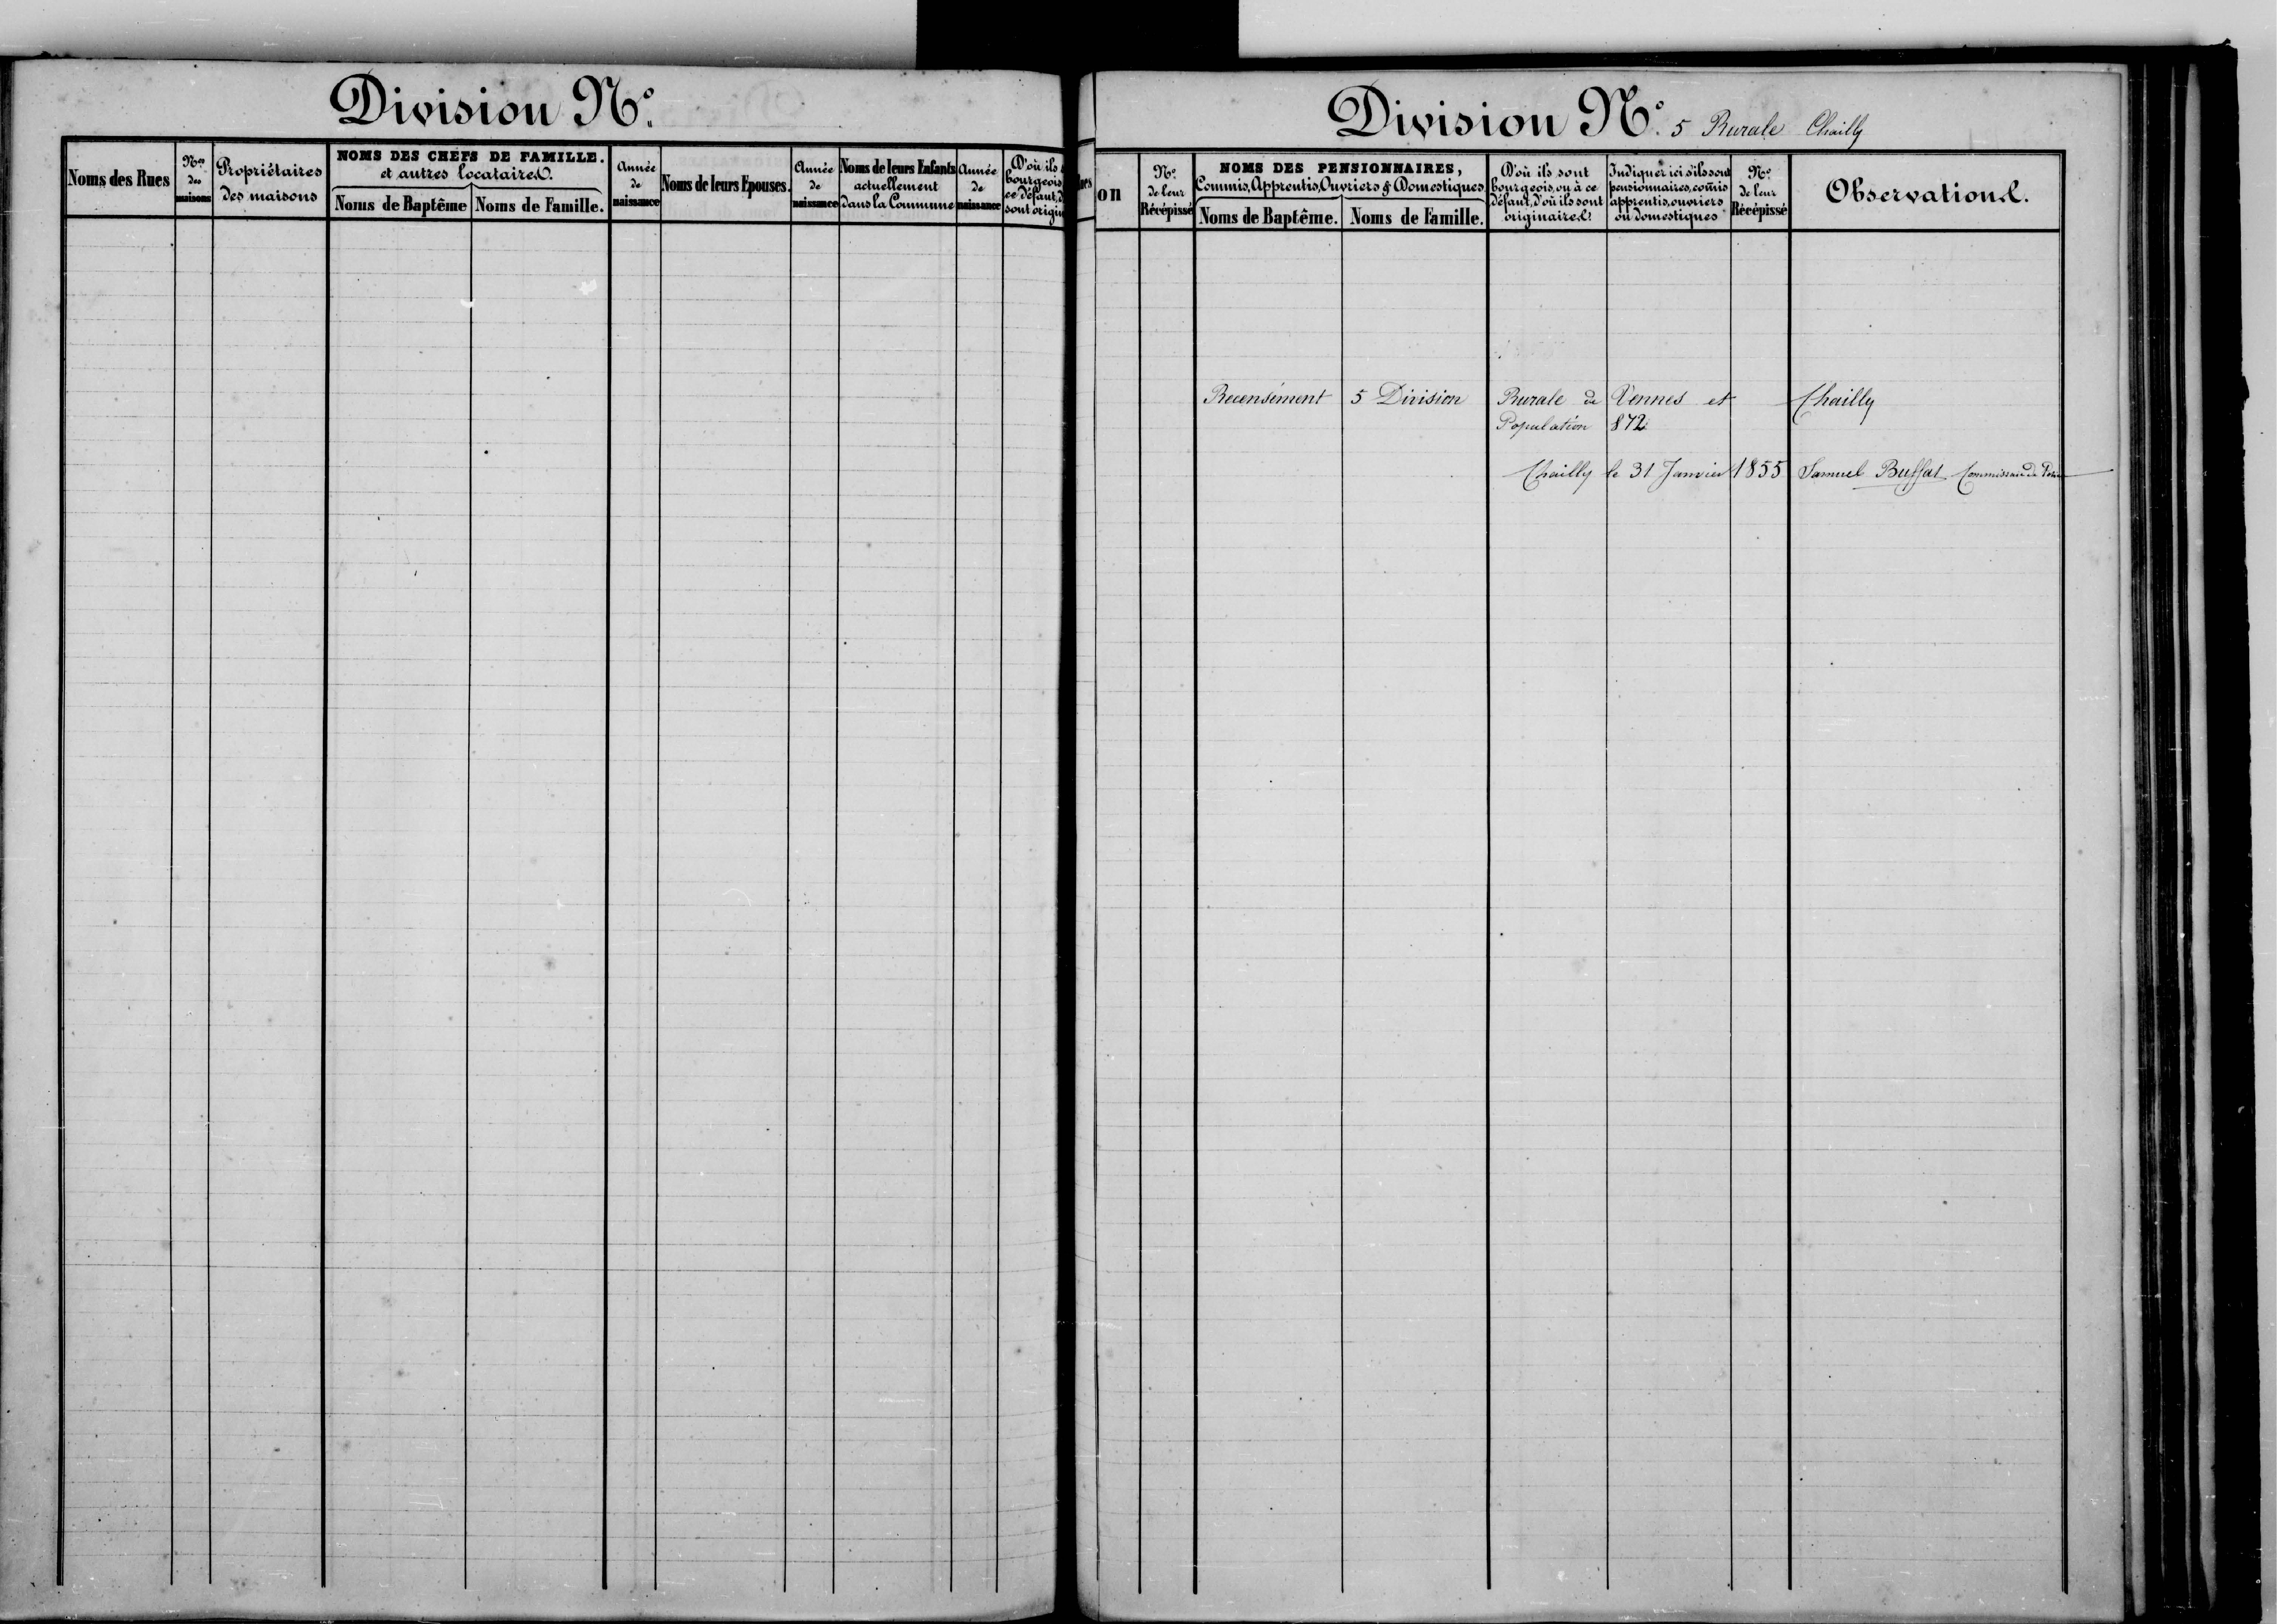 Division N°.
Noms des Rues
Nos des maisons
Propriétaires des maisons
NOMS DES CHEFS DE FAMILLE.
et autres locataires.
Noms de Baptême
Noms de Famille.
Année de naissance
Noms de leurs Epouses.
Année de naissance
Noms de leurs Enfants actuellement dans la Commune
Année de naissance
D'où ils
bourgeois
ce défaut, d
sont origin
Division N°. 5 Rurale Chailly
on
N°. de leur Récépissé
NOMS DES PENSIONNAIRES,
Commis, Apprentis, Ouvriers & Domestiques.
Noms de Baptême.
Noms de Famille.
D'où ils sont bourgeois, ou à ce défaut, d'où ils sont originaires.
Indiquer ici s'ils sont pensionnaires, com̃is apprentis, ouvriers ou domestiques
N°. de leur Récépissé
Observations.
Recensément 5 Division Rurale de Vennes et Chailly
Population 872
Chailly le 31 Janvier 1855 Samuel Buffat Commissaire de Police